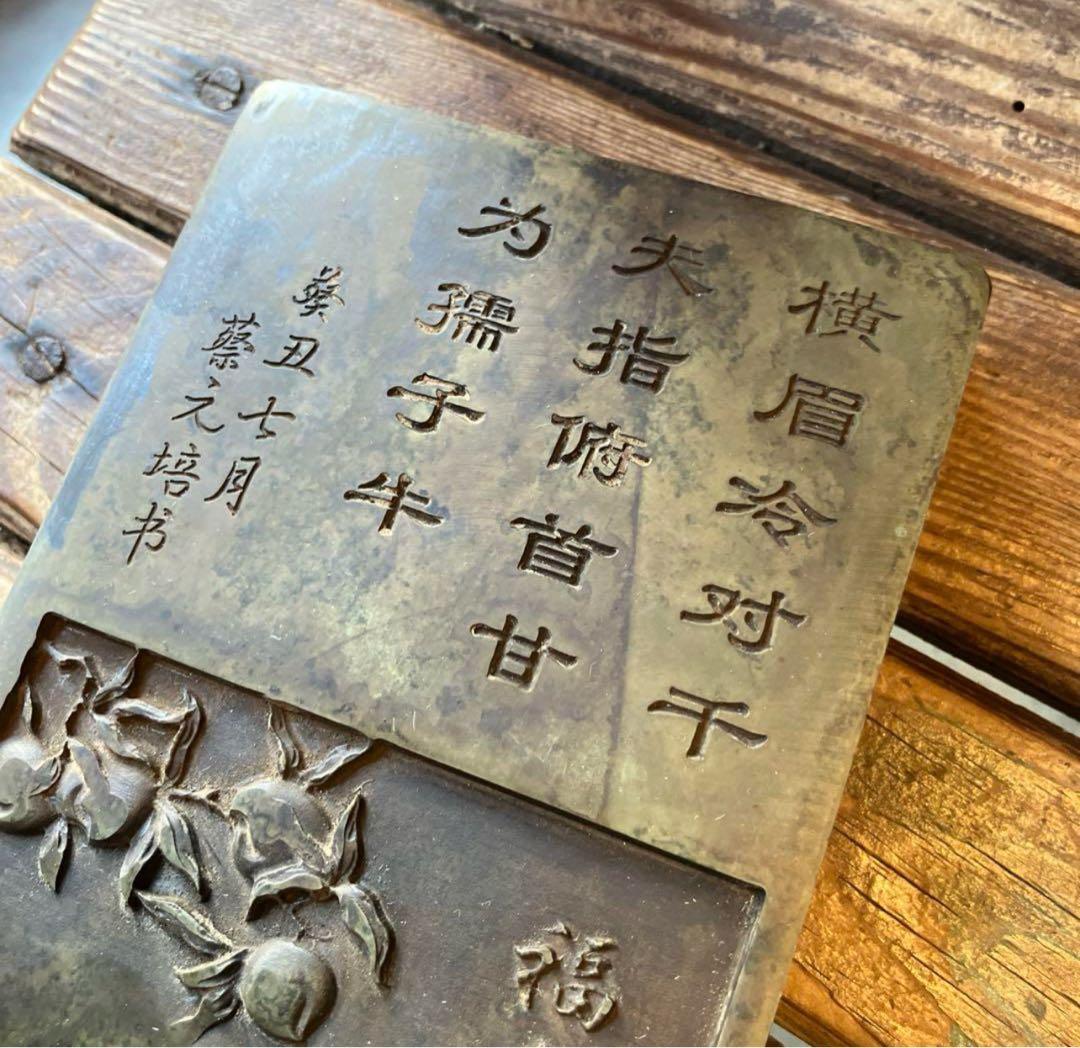 横眉冷对千
夫指俯首甘
为孺子牛
癸丑七月
蔡元培书
福